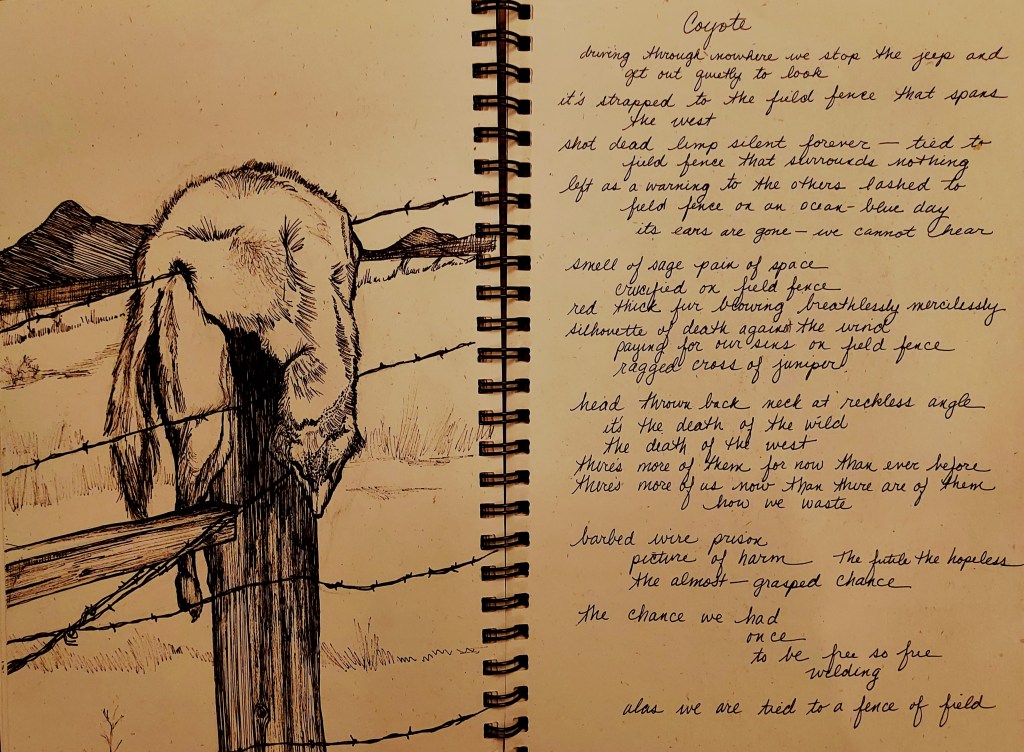 Coyote
driving through nowhere we stop the jeep and
get out quietly to look
it's strapped to the field fence that spans
the west
shot dead limp silent forever — tied to
field fence that surrounds nothing
left as a warning to the others lashed to
field fence on an ocean-blue day
its ears are gone — we cannot hear
smell of sage pain of space
crucified on field fence
red thick fur blowing breathlessly mercilessly
silhouette of death against the wind
paying for our sins on field fence
ragged cross of juniper
head thrown back neck at reckless angle
it's the death of the wild
the death of the west
there's more of them for now than ever before
there's more of us now than there are of them
how we waste
barbed wire prison
picture of harm The futile the hopeless
the almost-grasped chance
the chance we had
once
to be free so free
wilding
alas we are tied to a fence of field